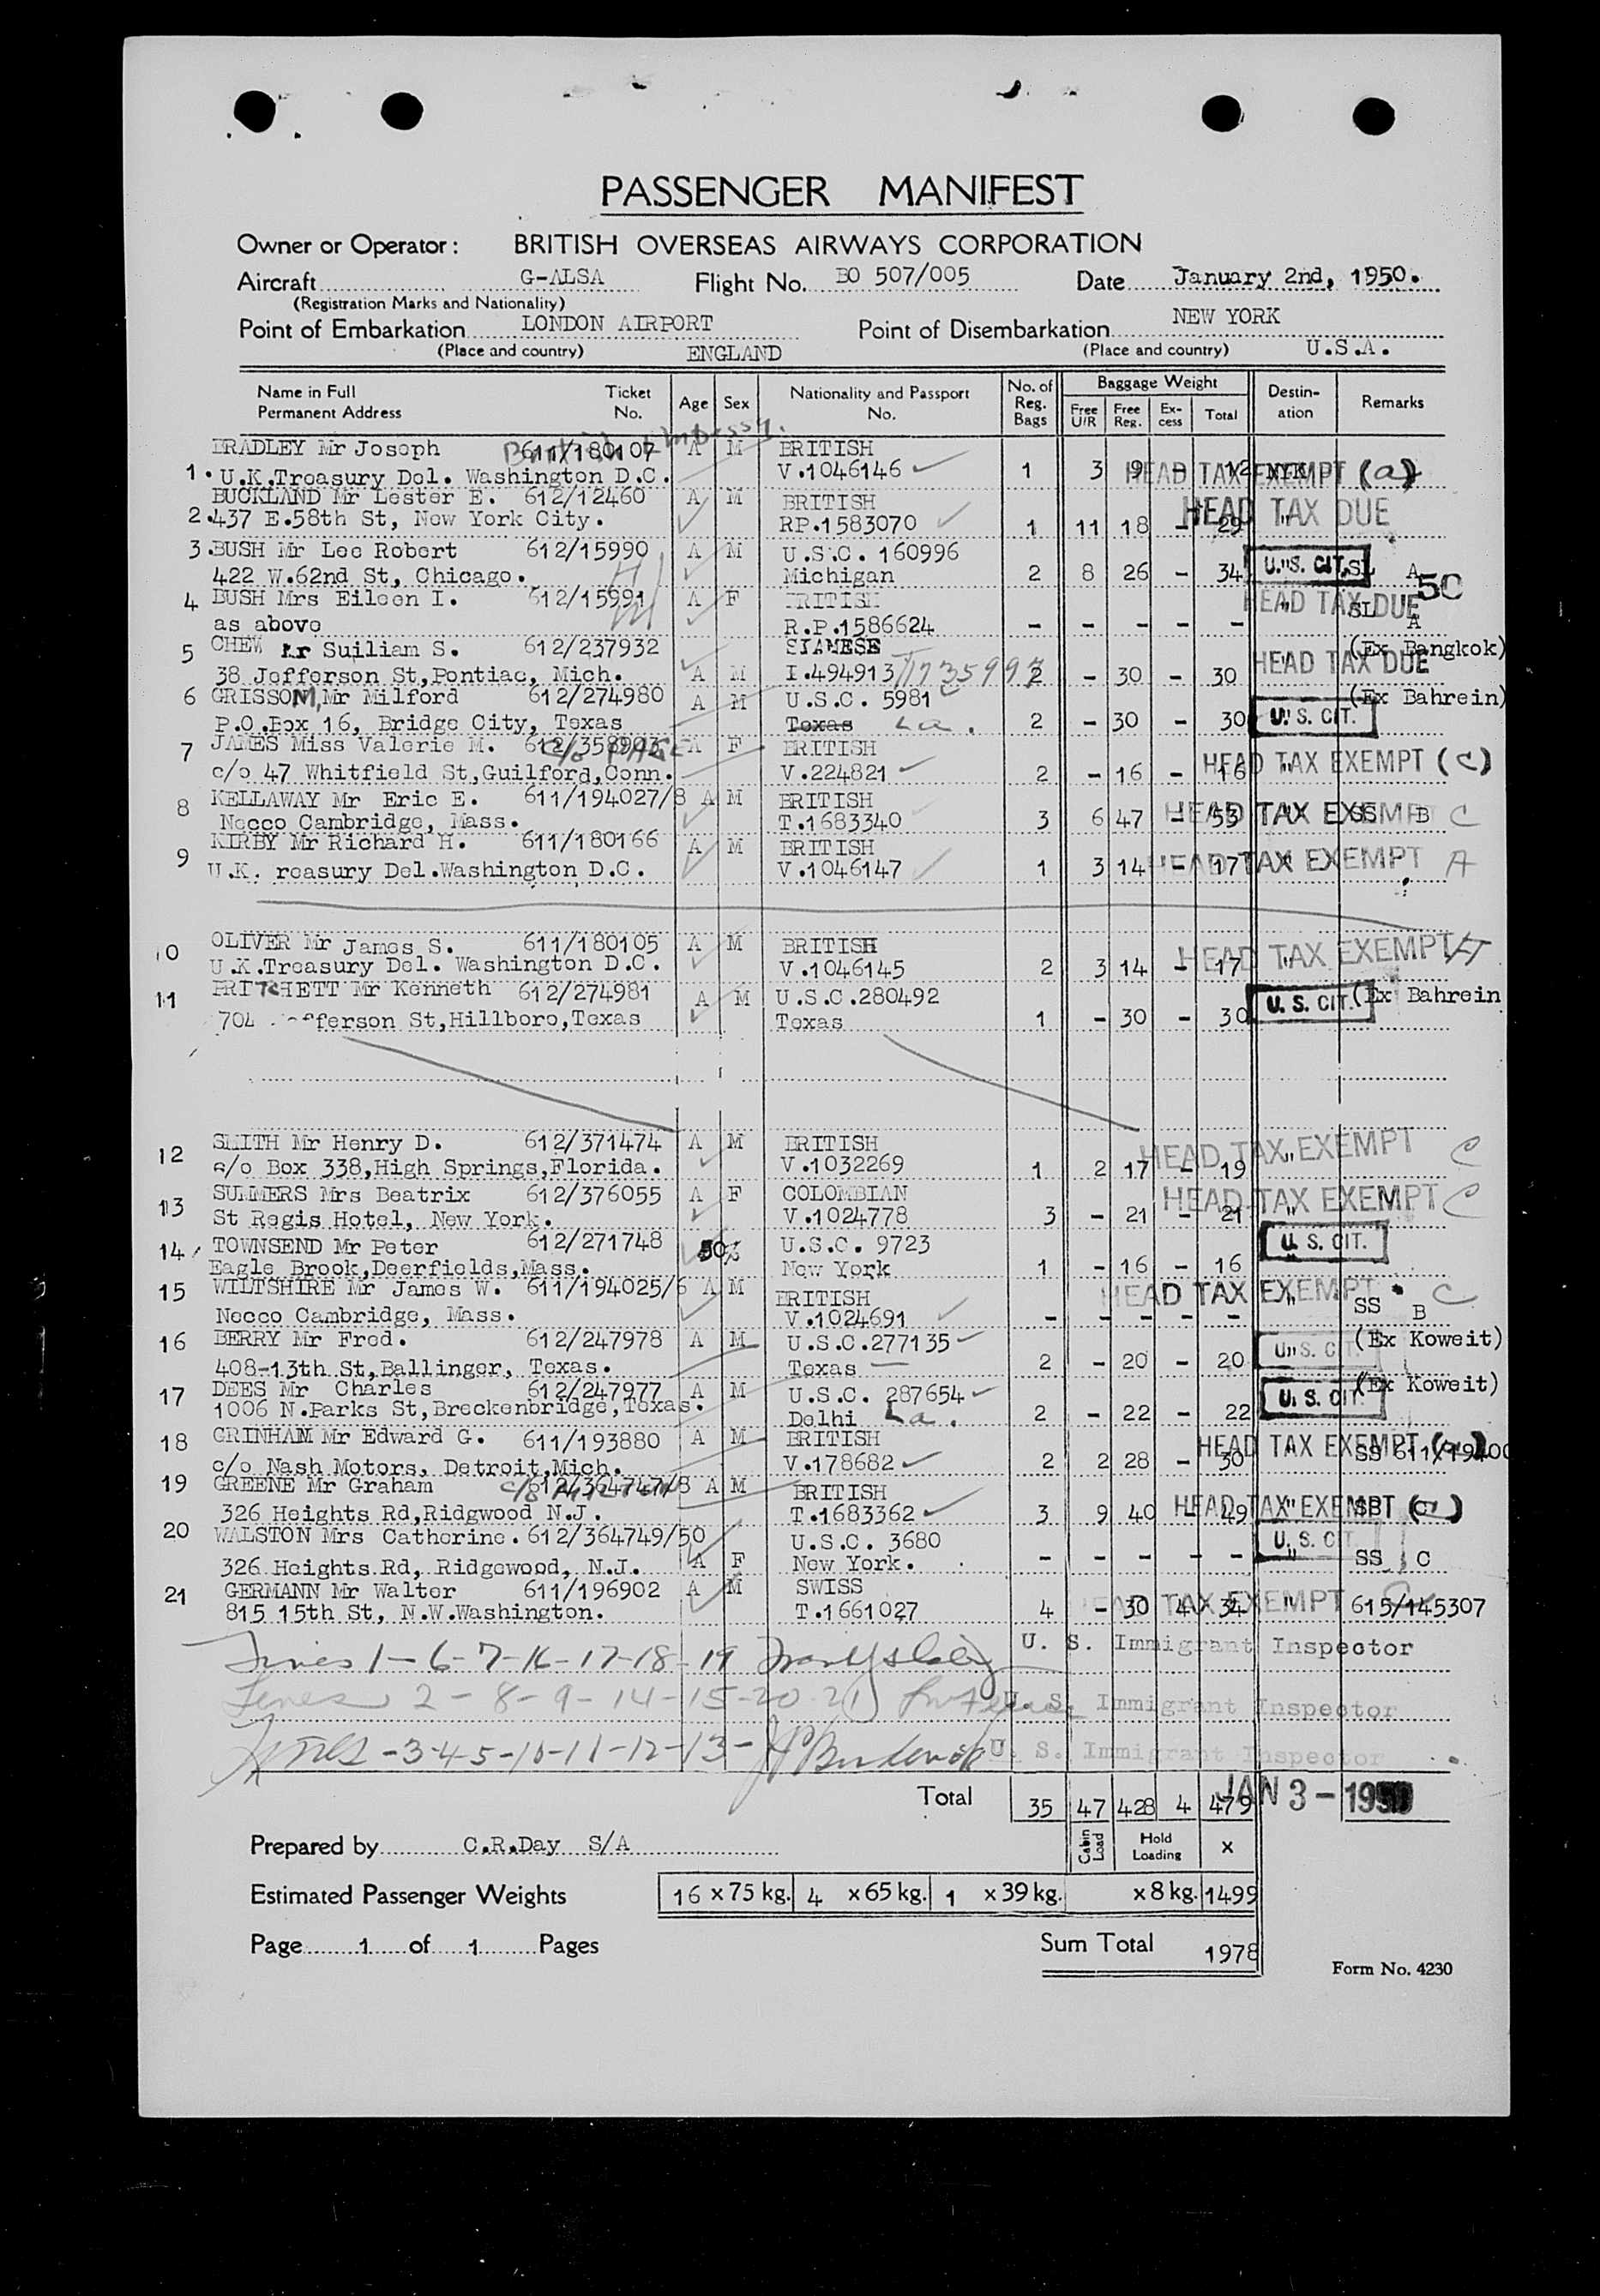 PASSENGER MANIFEST
Owner or Operator: BRITISH OVERSEAS AIRWAYS CORPORATION
Aircraft G-ALSA Flight No. BO 507/005 Date January 2nd, 1950.
(Registration Marks and Nationality)
Point of Embarkation LONDON AIRPORT Point of Disembarkation NEW YORK
(Place and country) ENGLAND (Place and country) U.S.A.
Name in Full Permanent Address Ticket No. Age Sex Nationality and Passport No. No. of Reg. Bags Baggage Weight Free U/R Free Reg. Ex-cess Total Destin-ation Remarks
BRADLEY Mr Joseph 611/180107 A M BRITISH
British Embassy.
1. U.K.Treasury Del. Washington D.C. V.1046146 1 3 9 - 12 NYK HEAD TAX EXEMPT (a)
BUCKLAND Mr Lester E. 612/12460 A M BRITISH
2. 437 E.58th St, New York City. RP.1583070 1 11 18 - 29 " HEAD TAX DUE
3. BUSH Mr Lee Robert 612/15990 A M U.S.C. 160996
422 W.62nd St, Chicago. Michigan 2 8 26 - 34 " U.S. CIT. SL A
4 BUSH Mrs Eileen I. 612/15991 A F BRITISH HEAD TAX DUE 50
as above R.P.1586624 - - - - - " SL A
5 CHEW Mr Suiliam S. 612/237932 SIAMESE (Ex Bangkok)
38 Jefferson St,Pontiac, Mich. A M I.494913 2 - 30 - 30 " HEAD TAX DUE
6 GRISSOM, Mr Milford 612/274980 A M U.S.C. 5981 (Ex Bahrein)
P.O.Box 16, Bridge City, Texas Texas La. 2 - 30 - 30 " U.S. CIT.
7 JAMES Miss Valerie M. 612/358903 A F BRITISH
c/o 47 Whitfield St,Guilford,Conn. V.224821 2 - 16 - 16 " HEAD TAX EXEMPT (c)
8 KELLAWAY Mr Eric E. 611/194027/8 A M BRITISH
Necco Cambridge, Mass. T.1683340 3 6 47 - 53 " HEAD TAX EXEMPT SS B C
9 KIRBY Mr Richard H. 611/180166 A M BRITISH
U.K. reasury Del.Washington D.C. V.1046147 1 3 14 - 17 " HEAD TAX EXEMPT A
10 OLIVER Mr James S. 611/180105 A M BRITISH
U.K.Treasury Del. Washington D.C. V.1046145 2 3 14 - 17 " HEAD TAX EXEMPT A
11 PRITCHETT Mr Kenneth 612/274981 A M U.S.C.280492 (Ex Bahrein
704 Jefferson St,Hillboro,Texas Texas 1 - 30 - 30 U.S. CIT.
12 SMITH Mr Henry D. 612/371474 A M BRITISH
c/o Box 338,High Springs,Florida. V.1032269 1 2 17 - 19 " HEAD TAX EXEMPT C
13 SUMMERS Mrs Beatrix 612/376055 A F COLOMBIAN
St Regis Hotel, New York. V.1024778 3 - 21 - 21 " HEAD TAX EXEMPT C
14 TOWNSEND Mr Peter 612/271748 50% U.S.C. 9723
Eagle Brook,Deerfields,Mass. New York 1 - 16 - 16 U.S. CIT.
15 WILTSHIRE Mr James W. 611/194025/6 A M BRITISH
Necco Cambridge, Mass. V.1024691 - - - - - " HEAD TAX EXEMPT SS B C
16 BERRY Mr Fred. 612/247978 A M U.S.C.277135 (Ex Koweit)
408-13th St,Ballinger, Texas. Texas 2 - 20 - 20 " U.S. CIT.
17 DEES Mr Charles 612/247977 A M U.S.C. 287654 (Ex Koweit)
1006 N.Parks St,Breckenbridge,Texas. Delhi La. 2 - 22 - 22 U.S. CIT.
18 GRINHAM Mr Edward G. 611/193880 A M BRITISH
c/o Nash Motors, Detroit,Mich. V.178682 2 2 28 - 30 HEAD TAX EXEMPT SS
19 GREENE Mr Graham 612/364747/8 A M BRITISH
326 Heights Rd,Ridgwood N.J. T.1683362 3 9 40 - 49 " HEAD TAX EXEMPT
20 WALSTON Mrs Catherine. 612/364749/50 U.S.C. 3680
326 Heights Rd, Ridgewood, N.J. A F New York. - - - - - " U.S. CIT. SS C
21 GERMANN Mr Walter 611/196902 A M SWISS
815 15th St, N.W.Washington. T.1661027 4 - 30 4 34 " HEAD TAX EXEMPT 615/145307
Lines 1-6-7-16-17-18-19 U. S. Immigrant Inspector
Lines 2-8-9-14-15-20-21 U. S. Immigrant Inspector
Lines -3-4-5-10-11-12-13- U. S. Immigrant Inspector
Total 35 47 428 4 479 JAN 3 - 1950
Prepared by C.R.Day S/A Cabin Load Hold Loading X
Estimated Passenger Weights 16 x 75 kg. 4 x 65 kg. 1 x 39 kg. x 8 kg. 1499
Page 1 of 1 Pages Sum Total 1978
Form No. 4230